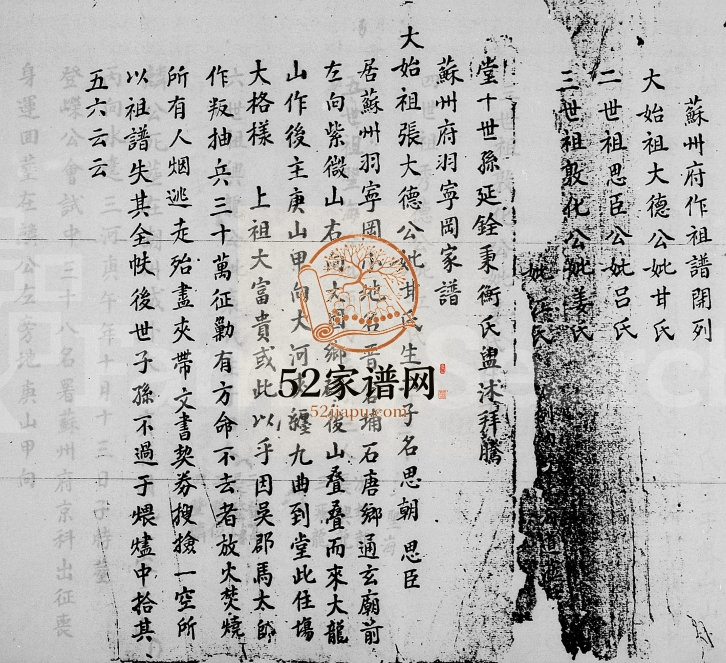 蘇州府作祖譜開列
大始祖大德公妣甘氏
二世祖思臣公妣呂氏
三世祖敦化公妣姜氏
妣張氏
堂十世孫延銓秉衡氏盥沐拜騰
蘇州府羽寧岡家譜
大始祖張大德公妣甘氏生子名思朝 思臣
居蘇州羽寧岡小地名晋石埔石唐鄉通玄廟前
左向紫微山右向大鄉後山叠叠而來大龍
山作後主庚山甲向大河九曲到堂此住塲
大格樣 上祖大富貴或此以乎因吳郡馬太師
作叛抽兵三十萬征勦有方命不去者放火焚燒
所有人烟逃走殆盡夾帶文書契券搜撿一空所
以祖譜失其全帙後世子孫不過于煨燼中拾其
五六云云
52家谱网
52jiapu.com